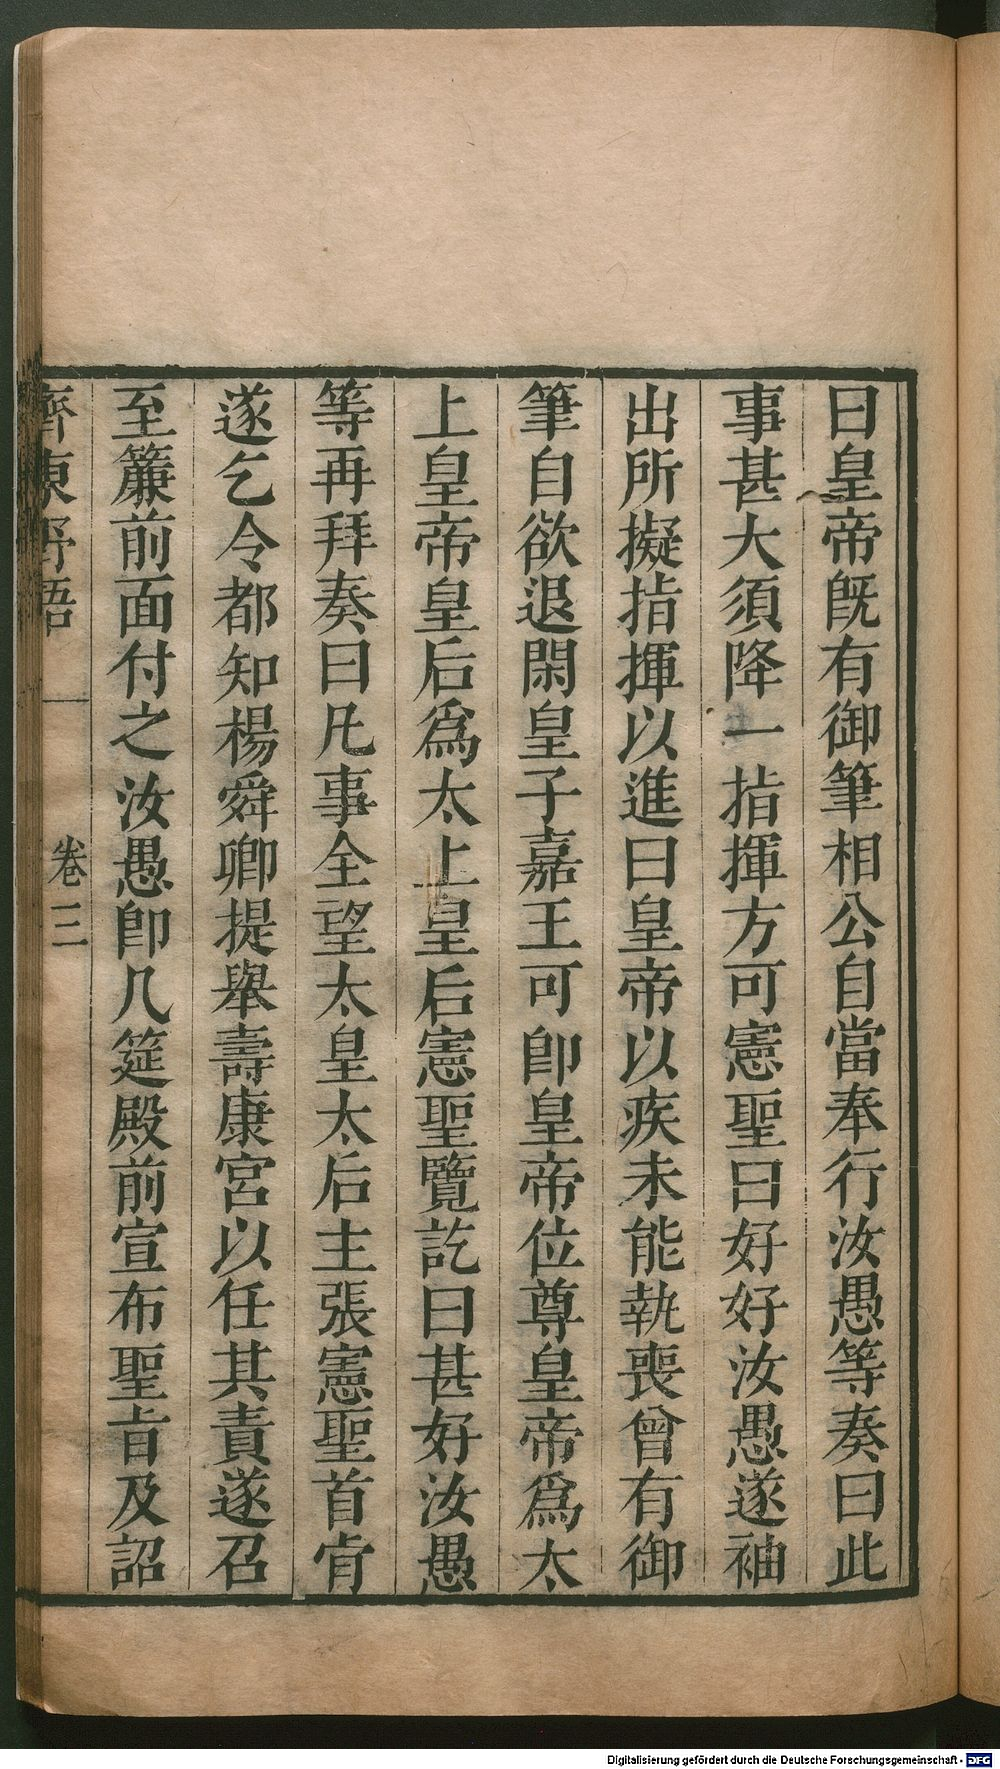 曰皇帝旣有御筆相公自當奉行汝愚等奏曰此
事甚大須降一指揮方可憲聖曰好好汝愚遂袖
出所擬指揮以進曰皇帝以疾未能執喪曾有御
筆自欲退閑皇子嘉王可卽皇帝位尊皇帝爲太
上皇帝皇后爲太上皇后憲聖覽訖曰甚好汝愚
等再拜奏曰凡事全望太皇太后主張憲聖首肯
遂乞令都知楊舜卿提舉壽康宮以任其責遂召
至簾前面付之汝愚卽几筵殿前宣布聖旨及詔
齊東野語 卷三
Digitalisierung gefördert durch die Deutsche Forschungsgemeinschaft - DFG